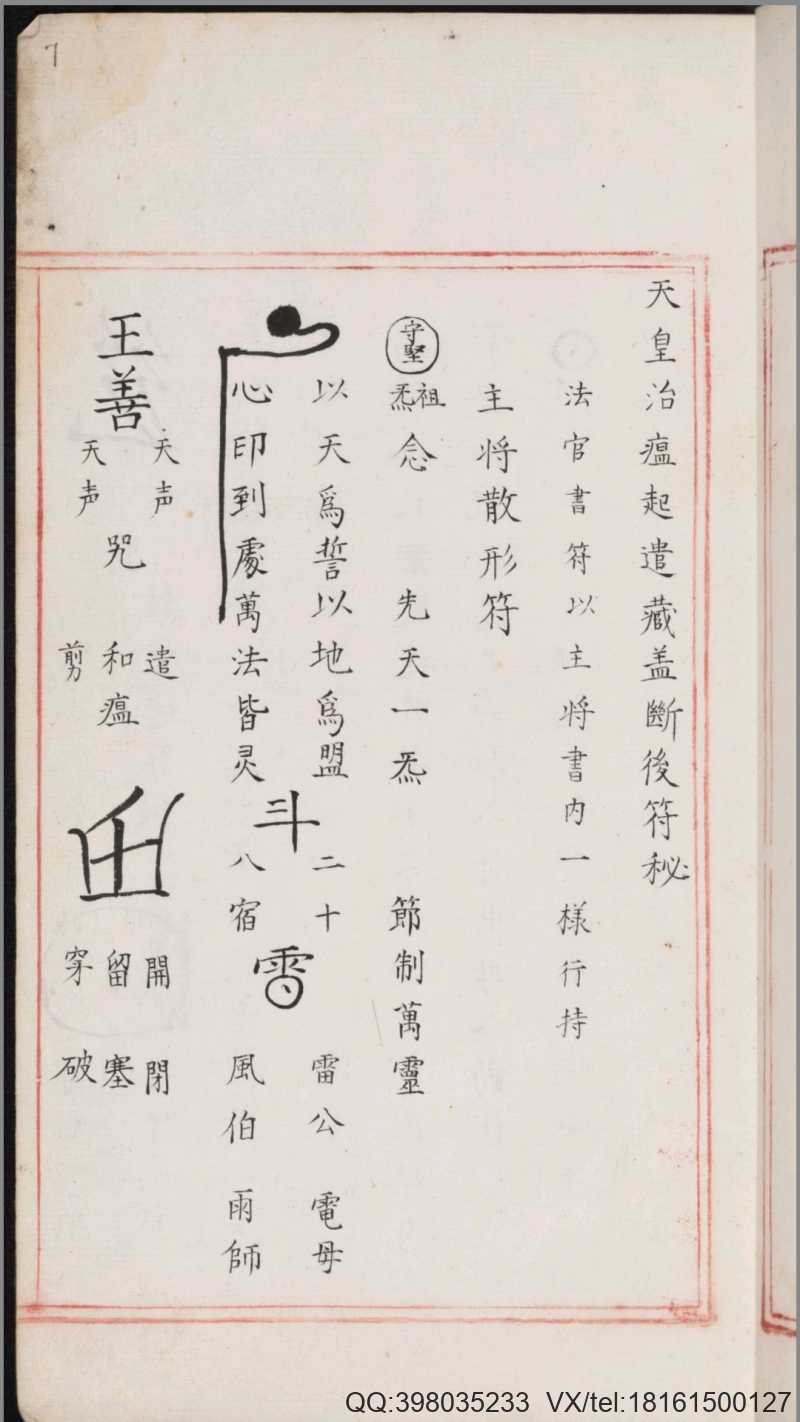 7
天皇治瘟起遣藏盖斷後符秘
法官書符以主將書内一樣行持
主將散形符
守堅
祖炁念 先天一炁 節制萬靈
以天爲誓以地爲盟 二十 雷公 電母
心印到處萬法皆灵 八宿 風伯 雨師
斗
王善
天声
天声
咒
遣
和瘟
剪
開 閉
留 塞
穿 破
QQ:398035233 VX/tel:18161500127